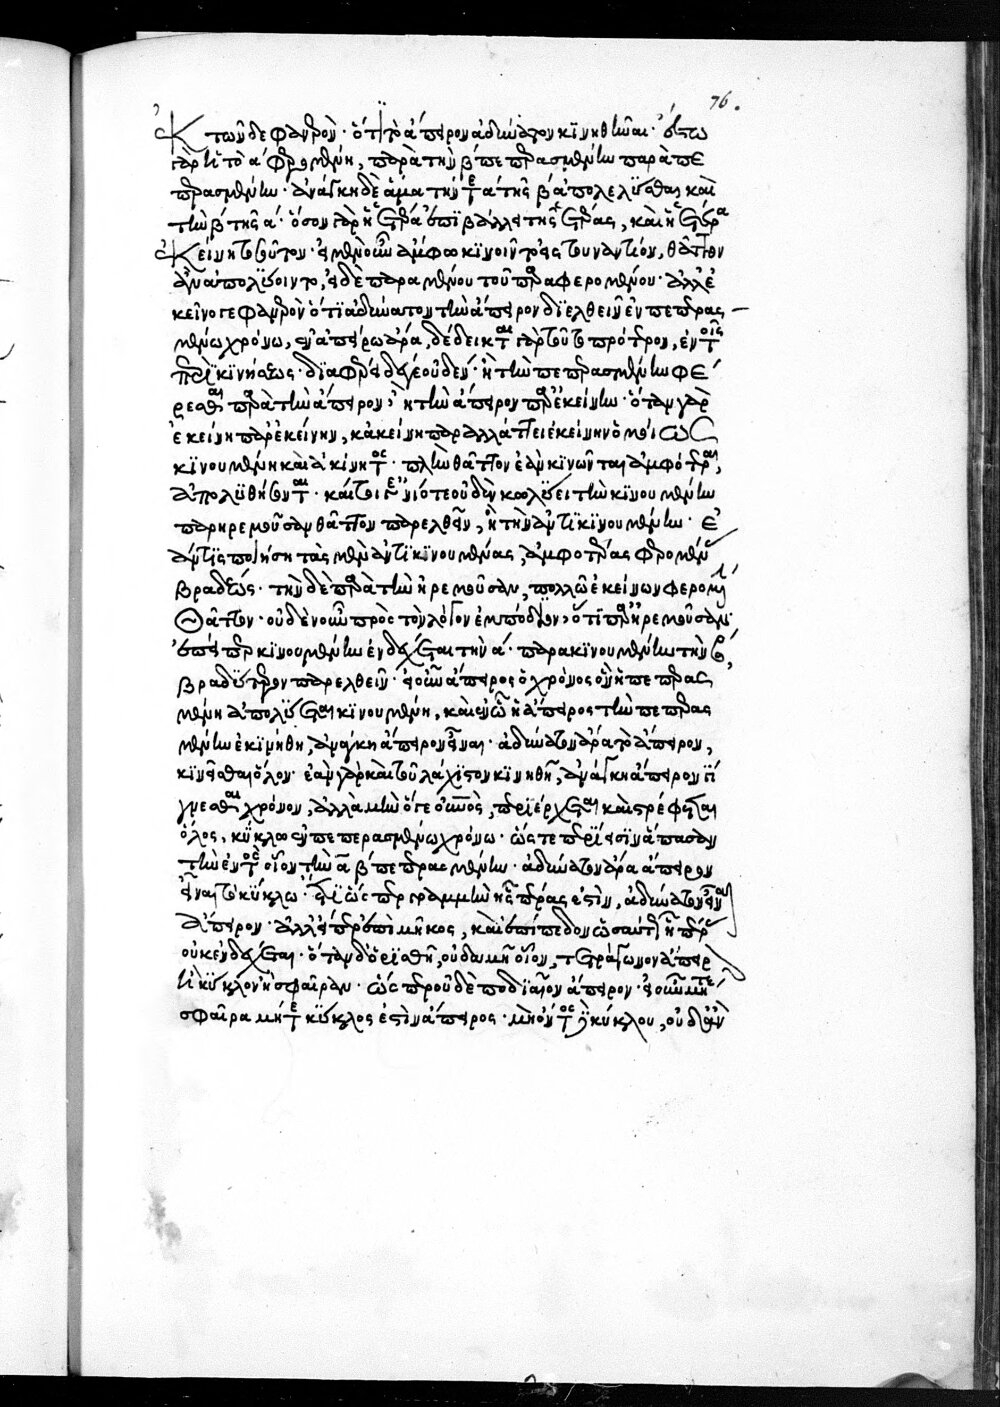 Ἐκ τῶνδε φανερὸν ὅτι τὸ ἄπειρον ἀδύνατον κινηθῆναι. ἔστω
γάρ τις τὸ ᾱ φερομένη, παρὰ τὴν β̄ πεπερασμένην παρὰ πε
περασμένην. ἀνάγκη δὲ ἅμα τήν τε ᾱ τῆς β̄ ἀπολελύσθαι καὶ
τὴν β̄ τῆς ᾱ. ὅσον γὰρ ἡ ἑτέρα ἐπιβάλλει τῆς ἑτέρας, καὶ ἡ ἑτέρα
ἐκείνης τοσοῦτον. εἰ μὲν οὖν ἄμφω κινοῖντο εἰς τοὐναντίον, θᾶττον
ἂν ἀπολύοιντο, εἰ δὲ παρὰ μένον τοῦ παραφερομένου. ἀλλ' ἐ
κεῖνό γε φανερὸν ὅτι ἀδύνατον τὴν ἄπειρον διελθεῖν ἐν πεπερασ
μένω χρόνω, ἐν ἀπείρω ἄρα, δέδεικται γὰρ τοῦτο πρότερον, ἐν τοῖς
περὶ κινήσεως. διαφέρει δέ γε οὐδὲν. ἢ τὴν πεπερασμένην φέ
ρεσθαι παρὰ τὴν ἄπειρον, ἢ τὴν ἄπειρον παρ' ἐκείνην. ὅταν γὰρ
ἐκείνη παρ' ἐκείνην, κἀκείνη παραλλάττει ἐκείνην ὁμοίως
κινουμένη καὶ ἀκίνητος. πλὴν θᾶττον ἐὰν κινῶνται ἀμφότεραι,
ἀπολυθήσονται. καίτοι ἐνίοτε οὐδὲν κωλύει τὴν κινουμένην
παρ' ἠρεμοῦσαν θᾶττον παρελθεῖν, ἢ τὴν ἀντικινουμένην. ἐ
άν τις ποιήση τὰς μὲν ἀντικινουμένας, ἀμφοτέρας φερομένας
βραδέως. τὴν δὲ παρὰ τὴν ἠρεμοῦσαν, πολλῶ ἐκείνων φερομένην
θᾶττον. οὐδὲν οὖν πρὸς τὸν λόγον ἐμπόδιον, ὅτι παρ' ἠρεμοῦσαν.
ἐπείπερ κινουμένην ἐνδέχεται τὴν ᾱ. παρὰ κινουμένην τὴν β̄,
βραδύτερον παρελθεῖν. εἰ οὖν ἄπειρος ὁ χρόνος ὃν ἡ πεπερασ
μένη ἀπολύεται κινουμένη, καὶ ἐν ὧ ἡ ἄπειρος τὴν πεπερασ
μένην ἐκινήθη, ἀνάγκη ἄπειρον εἶναι. ἀδύνατον ἄρα τὸ ἄπειρον,
κινεῖσθαι ὅλον. ἐὰν γὰρ καὶ τοὐλάχιστον κινηθῆ, ἀνάγκη ἄπειρον γί
γνεσθαι χρόνον, ἀλλὰ μὴν ὅ γε οὐρανὸς, περιέρχεται καὶ στρέφεται
ὅλος, κύκλω ἐν πεπερασμένω χρόνω. ὥστε περίεισιν ἅπασαν
τὴν ἐντὸς οἷον τὴν ᾱ β̄ πεπερασμένην. ἀδύνατον ἄρα ἄπειρον
εἶναι τὸ κύκλω. ἔτι ὥσπερ γραμμὴν ἧς πέρας ἐστὶν, ἀδύνατον εἶναι
ἄπειρον. ἀλλ' εἴπερ ἐπὶ μῆκος, καὶ ἐπίπεδον ὡσαύτως ἧ πέρας
οὐκ ἐνδέχεται. ὅταν δ' ὁρισθῆ, οὐδαμῆ οἷον, τετράγωνον ἄπειρ
ἢ κύκλον ἢ σφαῖραν. ὥσπερ οὐδὲ ποδιαῖον ἄπειρον. εἰ οὖν μήτε
σφαῖρα μήτε κύκλος ἐστὶν ἄπειρος. μὴ ὄντος κύκλου, οὐδ' ἂν